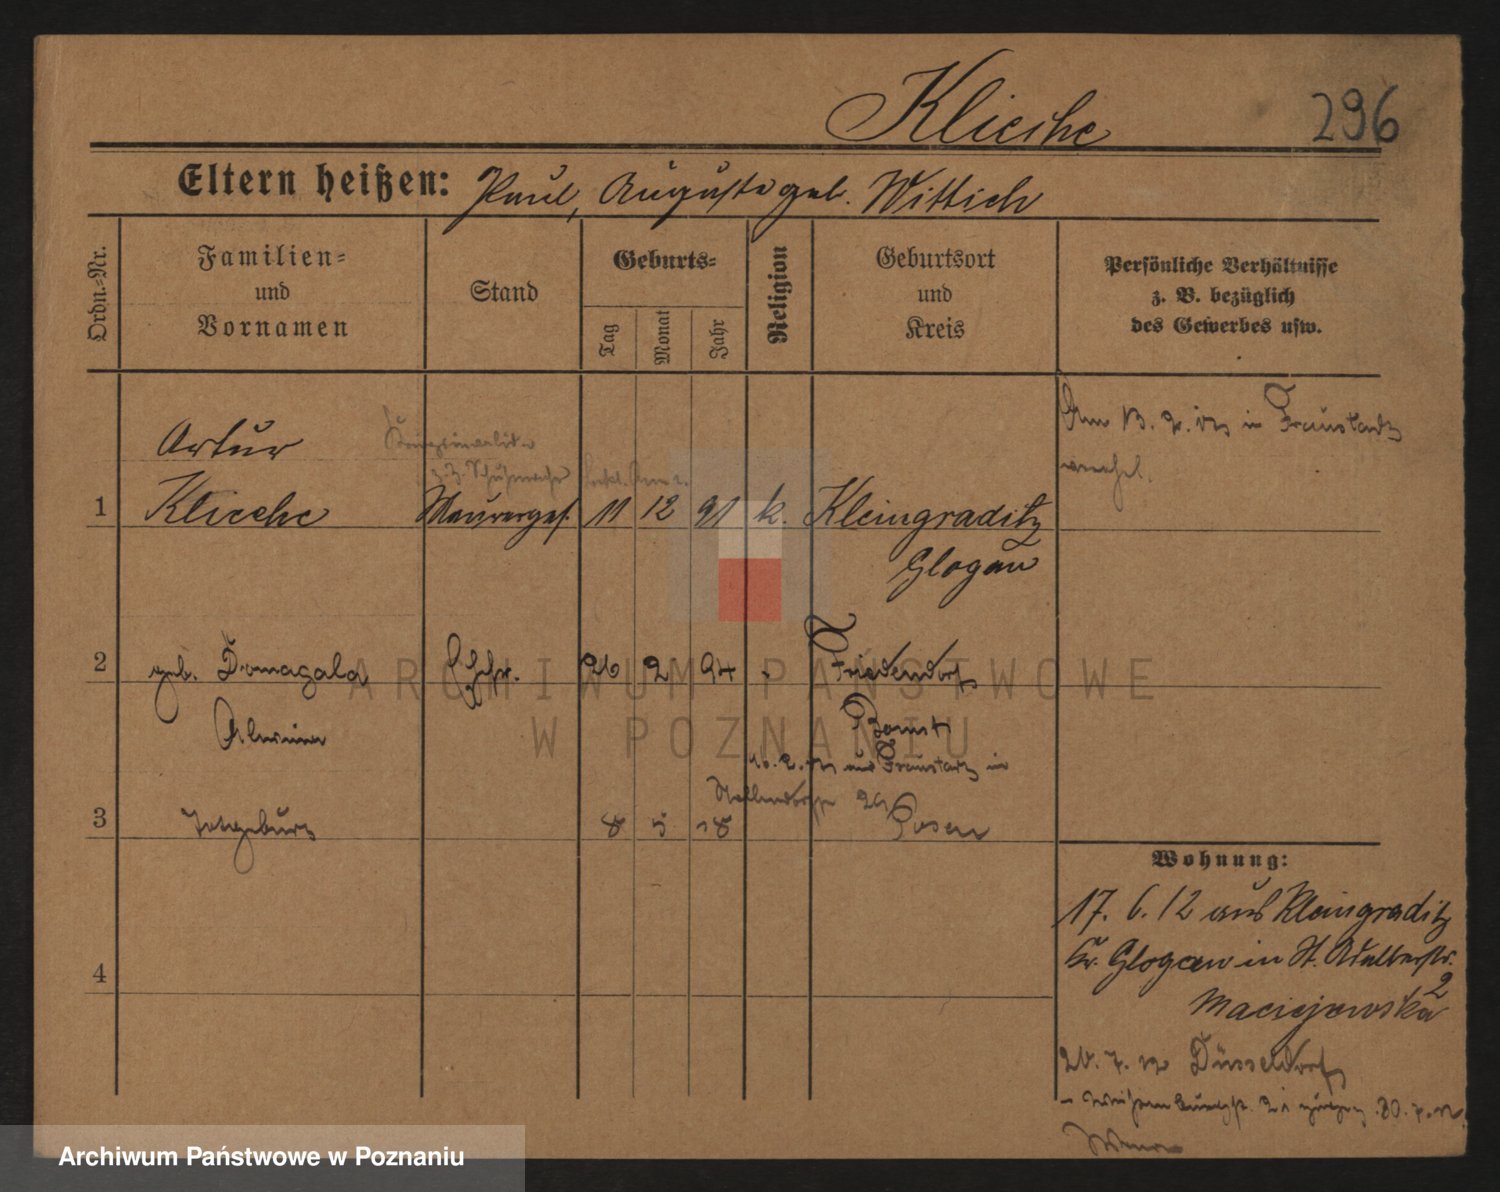 Kliesche
296
Eltern heißen: Paul, Auguste geb. Wittich
Ordn.-Nr.
Familien-
und
Vornamen
Stand
Geburts-
Tag
Monat
Jahr
Religion
Geburtsort
und
Kreis
Persönliche Verhältnisse
z. B. bezüglich
des Gewerbes usw.
Artur
1 Kliesche Maurerges. 11 12 91 k. Kleingraditz
Glogau
Am 13. 2. in Fraustadt
2 geb. Domagala Ehefr. 26 2 94 Friedendorf
Alwine
Bomst
Fraustadt in
3 Totgeburt 8 5 18 Posen
4
Wohnung:
17. 6. 12 aus Kleingraditz
Kr. Glogau in St. Adalbertstr.
2
Maciejewska
20. 7. 12 Düsseldorf
ARCHIWUM PAŃSTWOWE
W POZNANIU
Archiwum Państwowe w Poznaniu